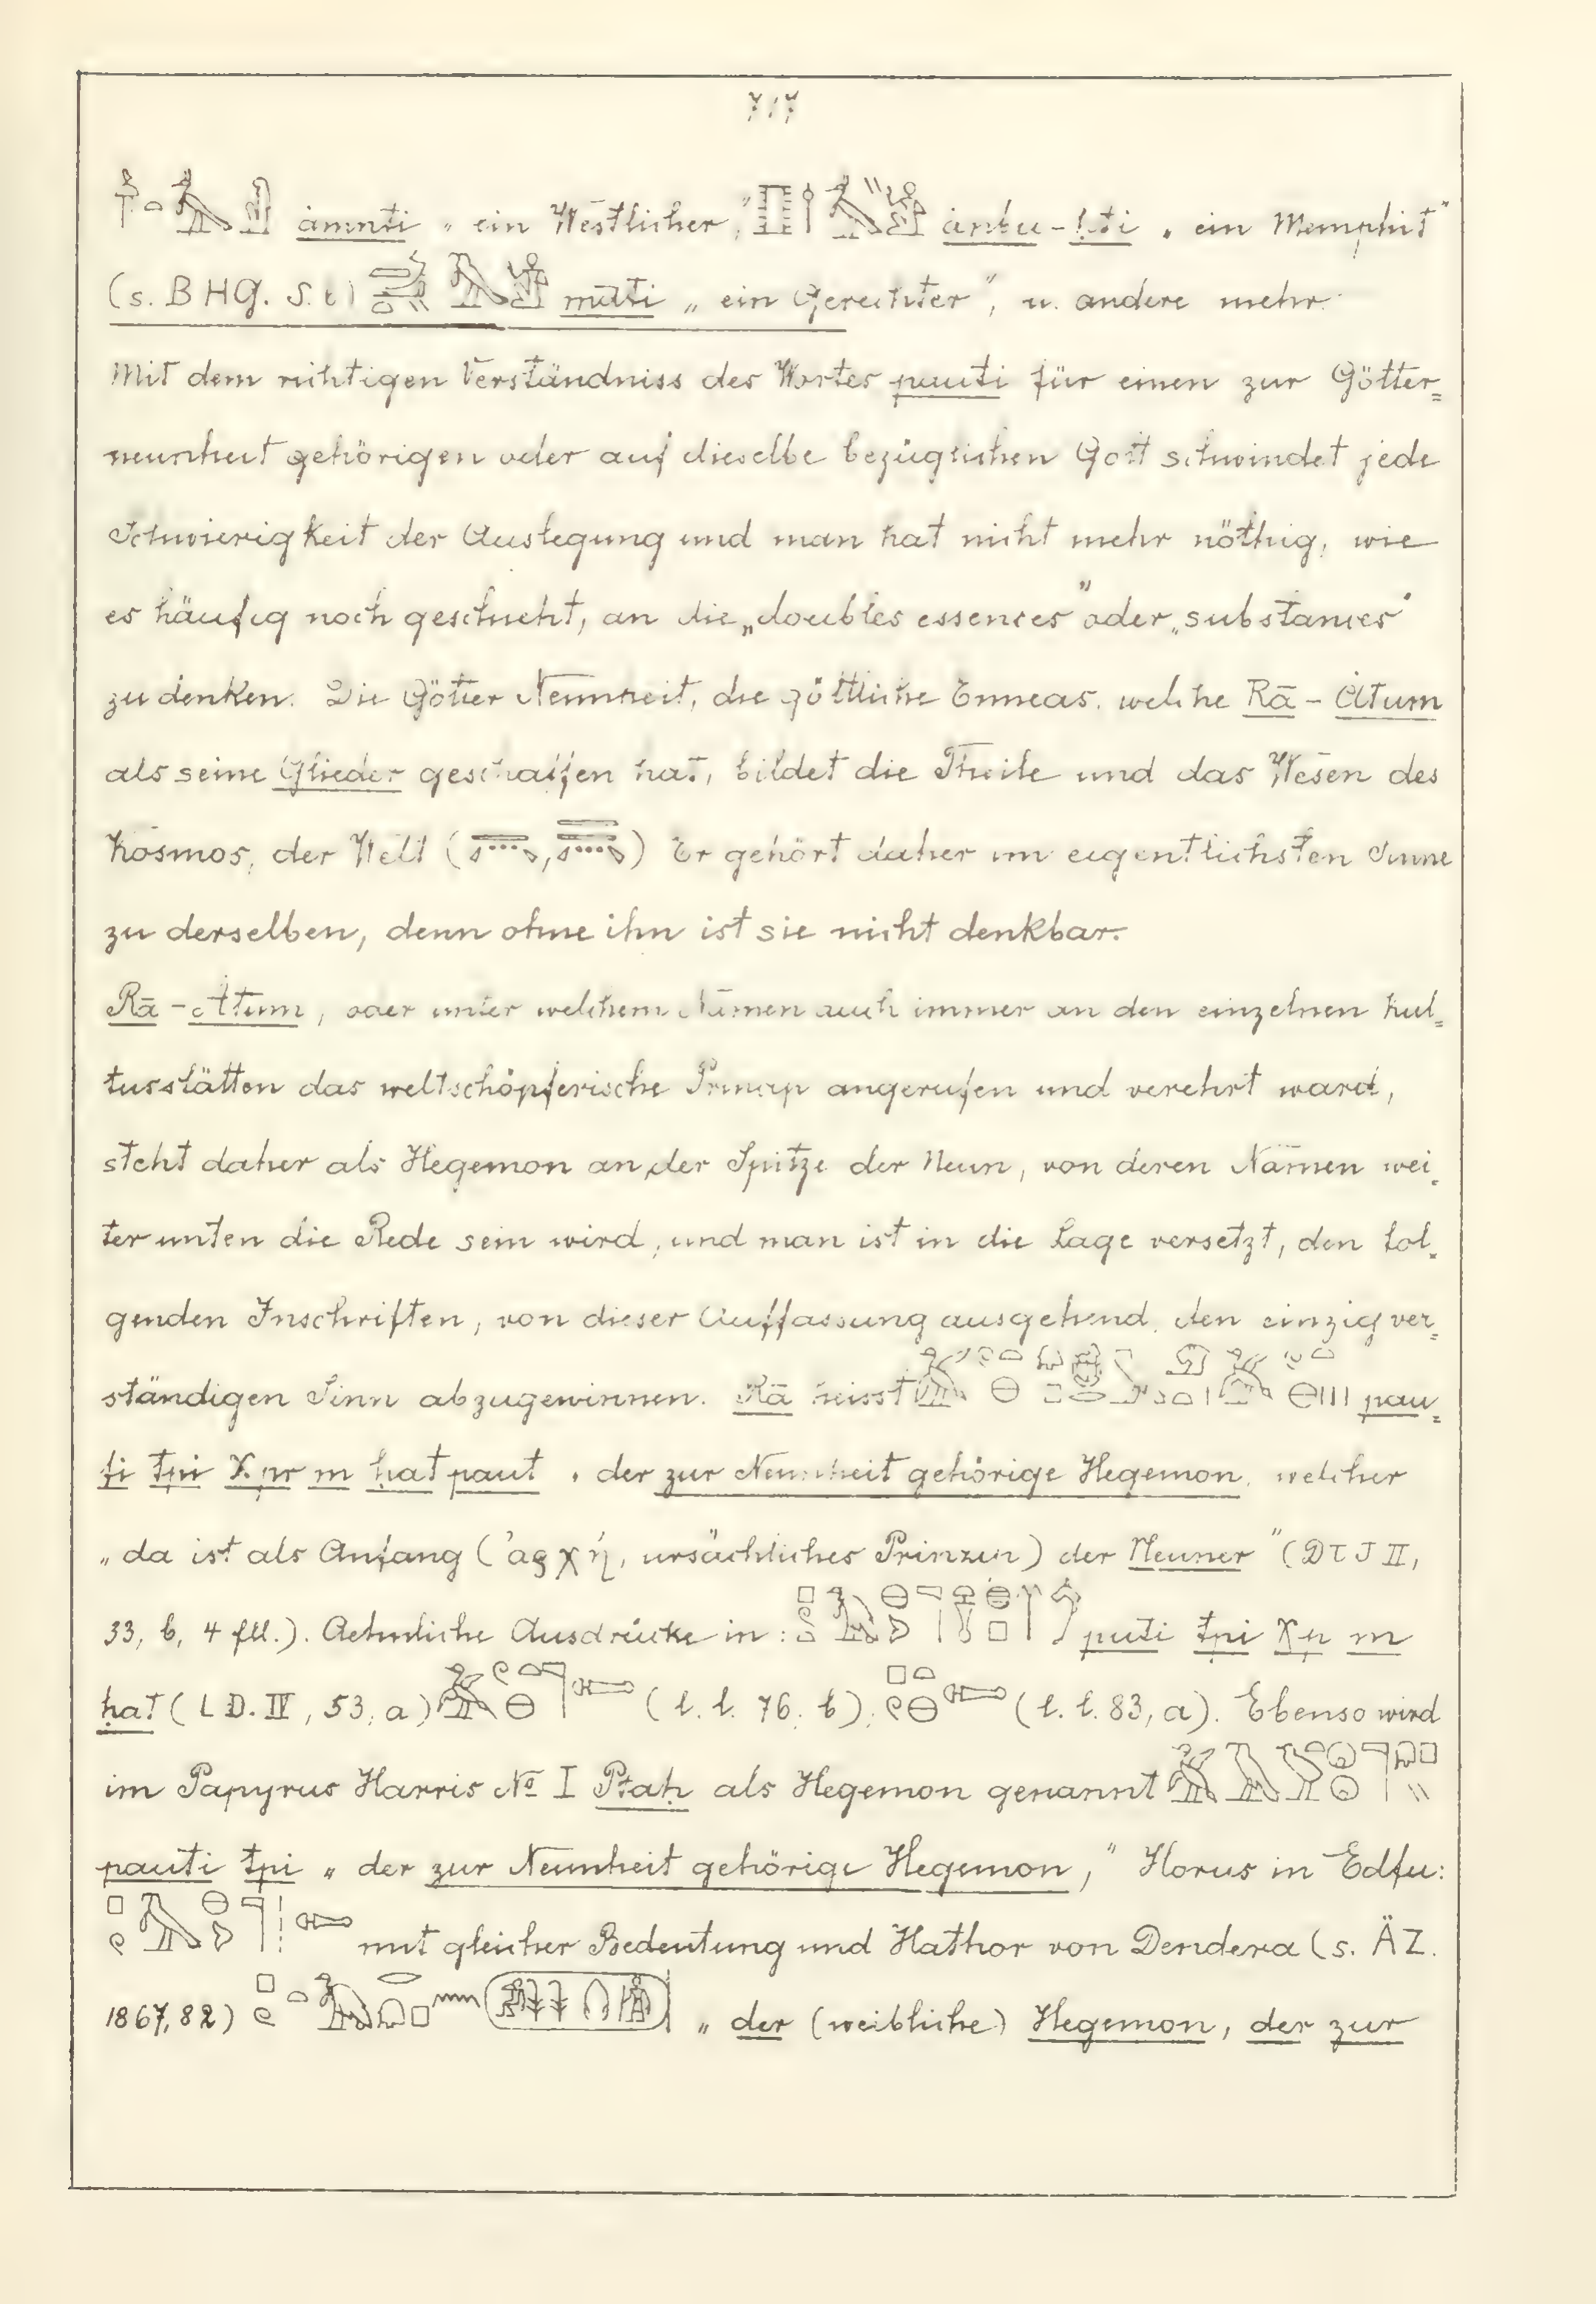 717
ȧmnti „ein Westlicher", ȧnbu-ḥti „ein Memphit"
(s. BHG. S. 6) mttti „ein Gerechter", u. andere mehr.
Mit dem richtigen Verständniss des Wortes pauti für einen zur Götter=
neunheit gehörigen oder auf dieselbe bezüglichen Gott schwindet jede
Schwierigkeit der Auslegung und man hat nicht mehr nöthig, wie
es häufig noch geschieht, an die „doubles essences" oder „substances"
zu denken. Die Götter Neunheit, die göttliche Enneas, welche Rā-Atum
als seine Glieder geschaffen hat, bildet die Theile und das Wesen des
Kosmos, der Welt ( , ) Er gehört daher im eigentlichsten Sinne
zu derselben, denn ohne ihn ist sie nicht denkbar.
Rā-Atum, oder unter welchem Namen auch immer an den einzelnen Kul=
tusstätten das weltschöpferische Princip angerufen und verehrt ward,
steht daher als Hegemon an der Spitze der Neun, von deren Namen wei=
ter unten die Rede sein wird, und man ist in die Lage versetzt, den fol=
genden Inschriften, von dieser Auffassung ausgehend, den einzig ver=
ständigen Sinn abzugewinnen. Rā heisst pau=
ti tpi χpr m ḥat paut „der zur Neunheit gehörige Hegemon, welcher
„da ist als Anfang (ἀρχή, ursächliches Prinzip) der Neuner" (DTJ II,
33, b, 4 fll.). Aehnliche Ausdrücke in: puti tpi χp m
ḥat (LD. IV, 53, a) (l. l. 76. b), (l. l. 83, a). Ebenso wird
im Papyrus Harris № I Ptaḥ als Hegemon genannt
pauti tpi „der zur Neunheit gehörige Hegemon," Horus in Edfu:
mit gleicher Bedeutung und Hathor von Dendera (s. ÄZ.
1867, 82) „der (weibliche) Hegemon, der zur